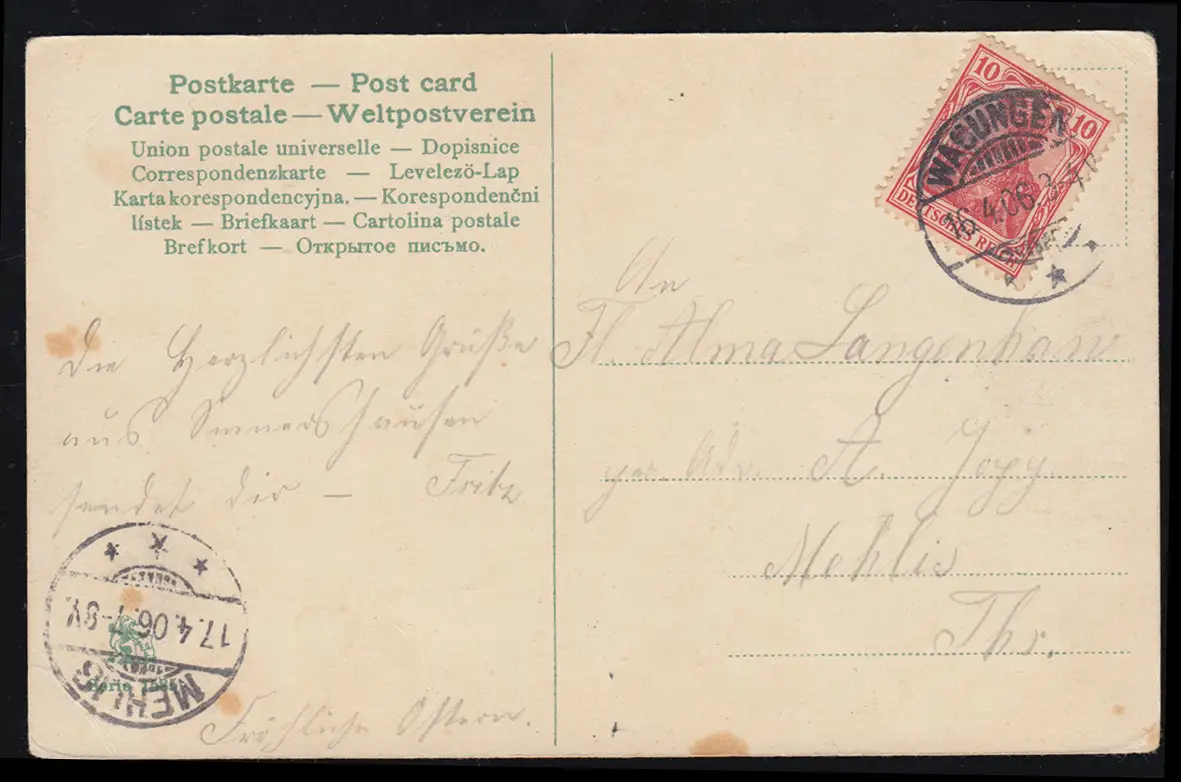 Postkarte — Post card
Carte postale — Weltpostverein
Union postale universelle — Dopisnice
Correspondenzkarte — Levelezö-Lap
Karta korespondencyjna. — Korespondenčni
lístek — Briefkaart — Cartolina postale
Brefkort — Открытое письмо.
10 10
DEUTSCHES REICH
WASUNGEN
16.4.06.
An
Fl. Alma Langenhan
A.
Mehlis
Thr.
Die Herzlichsten Grüße
aus
sendet dir — Fritz
17.4.06. 7-8V.
MEHLIS
Serie
Fröhliche Ostern.